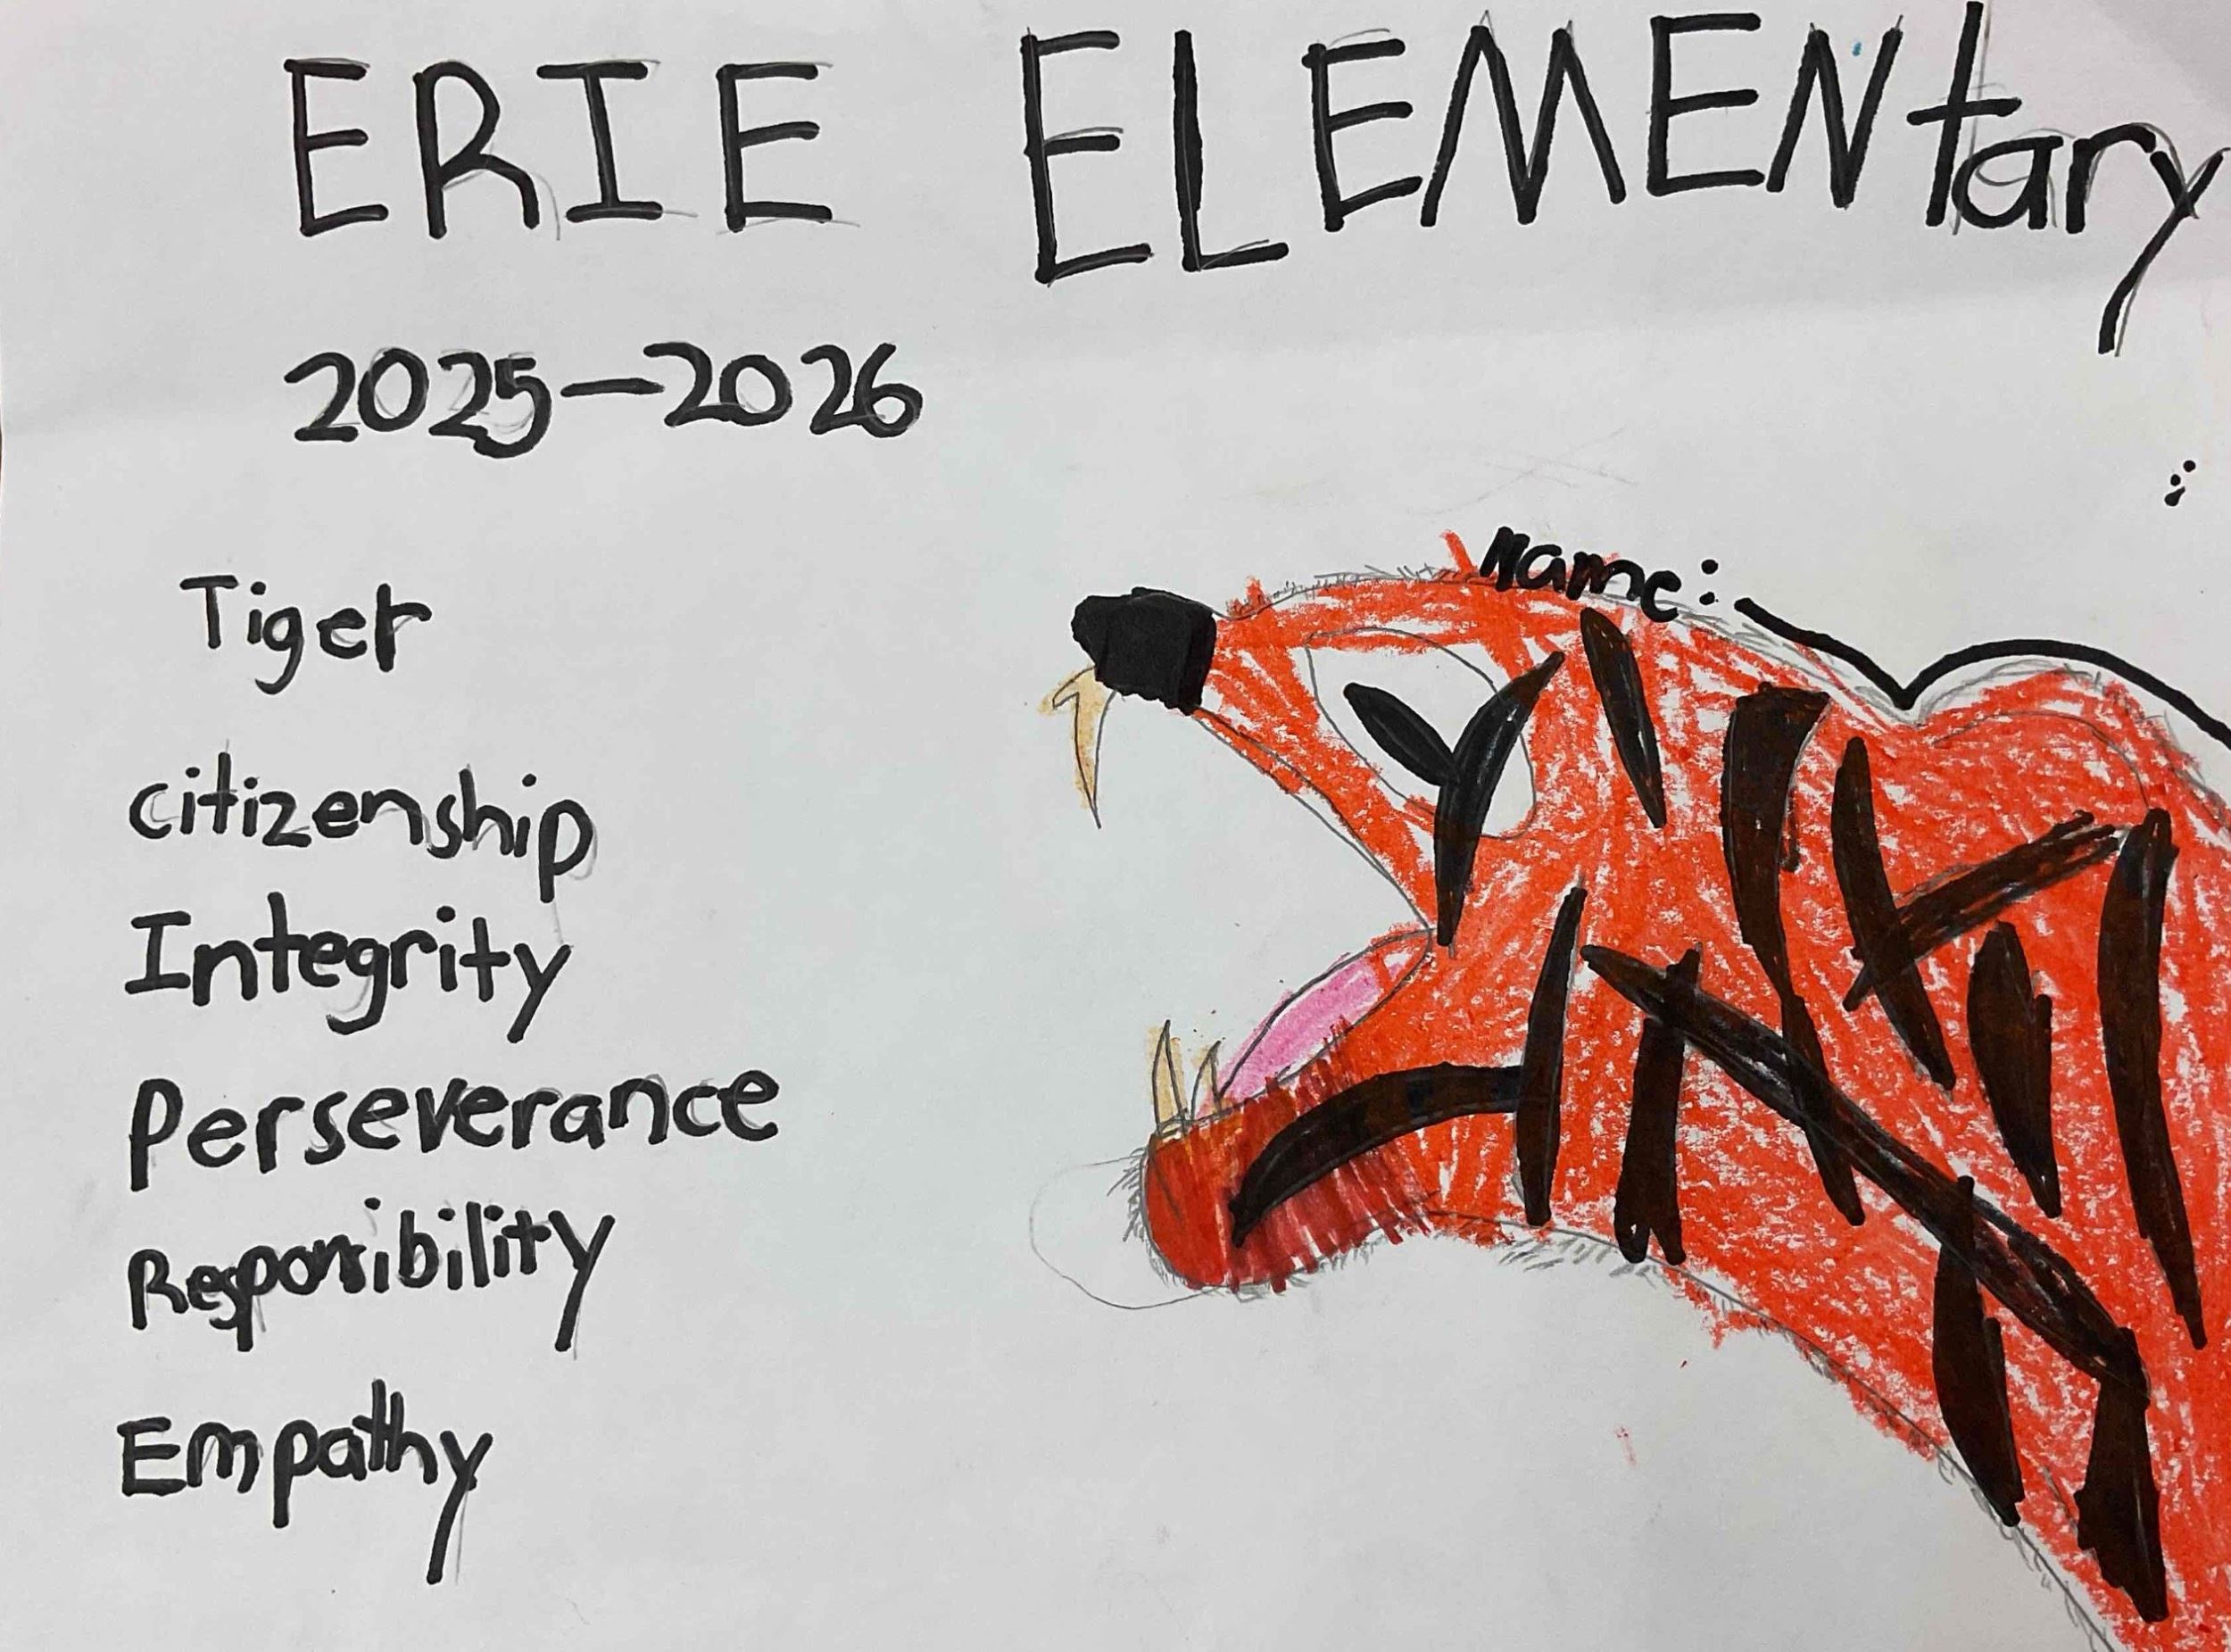 ERIE ELEMENtary
2025-2026
Name:
Tiger
citizenship
Integrity
Perseverance
Responsibility
Empathy